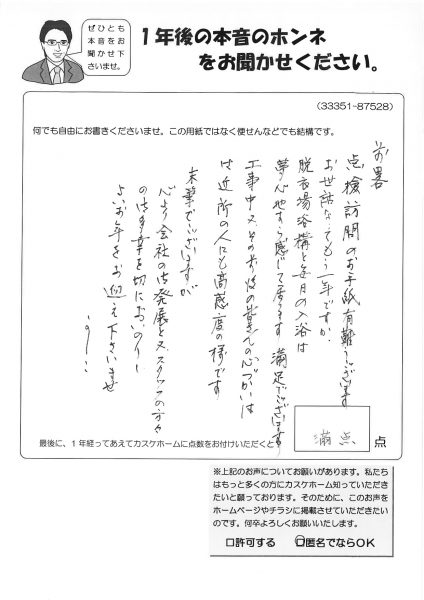 ぜひとも
本音をお
聞かせ下
さいませ。
1年後の本音のホンネ
をお聞かせください。
(33351-87528)
何でも自由にお書きくださいませ。この用紙ではなく便せんなどでも結構です。
前略
点検訪問のお手紙有難うございます
お世話なってもう一年ですか、
脱衣場浴槽と毎日の入浴は
夢心地すら感じて居ります 満足でございます
工事中又、その お皆さんの心づかいは
は近所の人にも高感度の様です
末筆でございますが
心より会社の御発展とスタッフの方々
の御多幸を切にお いのり
よいお年をお迎え下さいませ
最後に、1年経ってあえてカスケホームに点数をお付けいただくと
満点
点
※上記のお声についてお願いがあります。私たち
はもっと多くの方にカスケホーム知っていただき
たいと願っております。そのために、このお声を
ホームページやチラシに掲載させていただきたい
のです。何卒よろしくお願いいたします。
□許可する □匿名でならOK